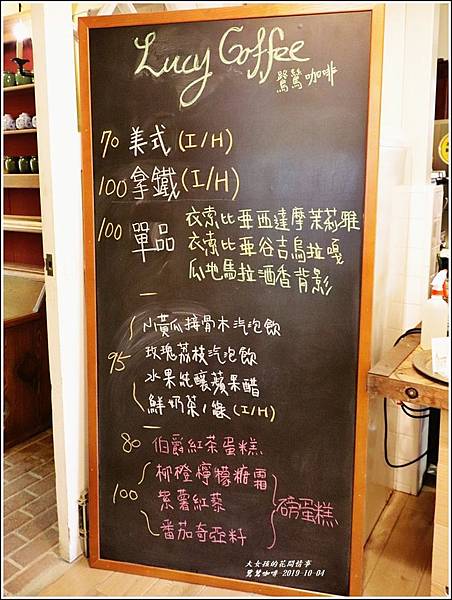 Lucy Coffee
鷺鷥咖啡
70 美式 (I/H)
100 拿鐵 (I/H)
100 單品 衣索比亞西達摩茉莉雅
衣索比亞谷吉烏拉嘎
瓜地馬拉酒香背影
小黃瓜接骨木汽泡飲
95 玫瑰荔枝汽泡飲
水果純釀蘋果醋
鮮奶茶/綠 (I/H)
80 伯爵紅茶蛋糕
柳橙檸檬糖霜
100 紫薯紅藜 磅蛋糕
番茄奇亞籽
大女孩的花間情事
鷺鷥咖啡 2019-10-04